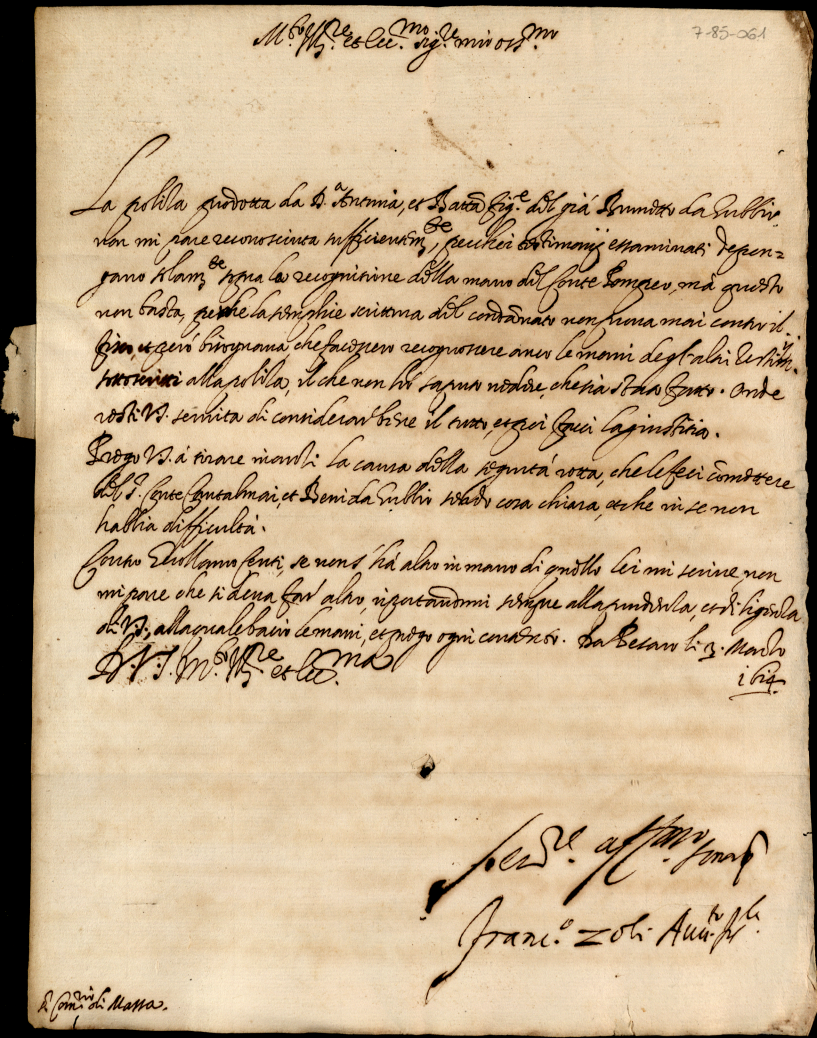 7-85-061
M.to Ill.re et Ecc.mo Sig.re mio oss.mo
La polila prodotta da D.a Antonia, et Batta fig.e del già Brunetto da Gubbio
non mi pare reconosciuta sufficientem.te, perche i testimonij essaminati depon=
gano solam.te sopra la recognitione della mano del Conte Pompeo, mà questo
non basta, perche la semplice scrittura del condãnato non prova mai contro il
fisco, et però bisognava, che facessero recognoscere anco le mani degl'altri testim.
sottoscritti alla polila, il che non hò saputo vedere, che sia stato fatto. Onde
resti VS. servita di considerar bene il tutto, et poi facci la giustitia.
Prego VS. à tirare inanti la causa della sigurtà rotta, che le feci cõmettere
del S.r Conte, et Beni da Gubbio sendo cosa chiara, et che in se non
habbia difficultà.
Contro Centi, se non s'hà altro in mano di quello lei mi scrive, non
mi pare che si deva far' altro, riportandomi sempre alla prudenza, et diligenza
di VS., alla quale bacio le mani, et prego ogni contento. Da Pesaro li 3. Marzo
D. V. S. M.to Ill.re et Ecc.ma
1614
Ser.re aff.mo
Franc.o Zoli Aud.re
S. Com.rio di Massa.